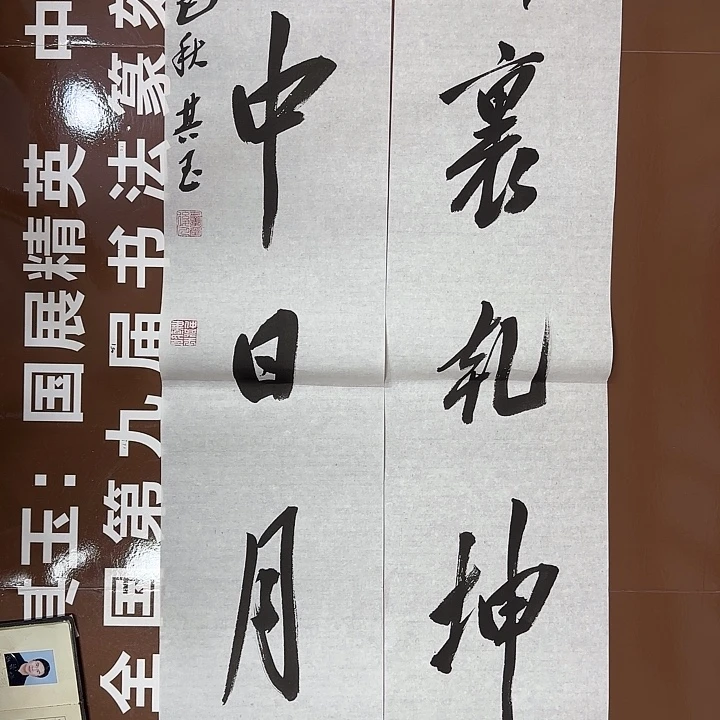 裏乾坤
中日月
秋其玉
其玉：国展精英 中
全国第九届书法篆刻